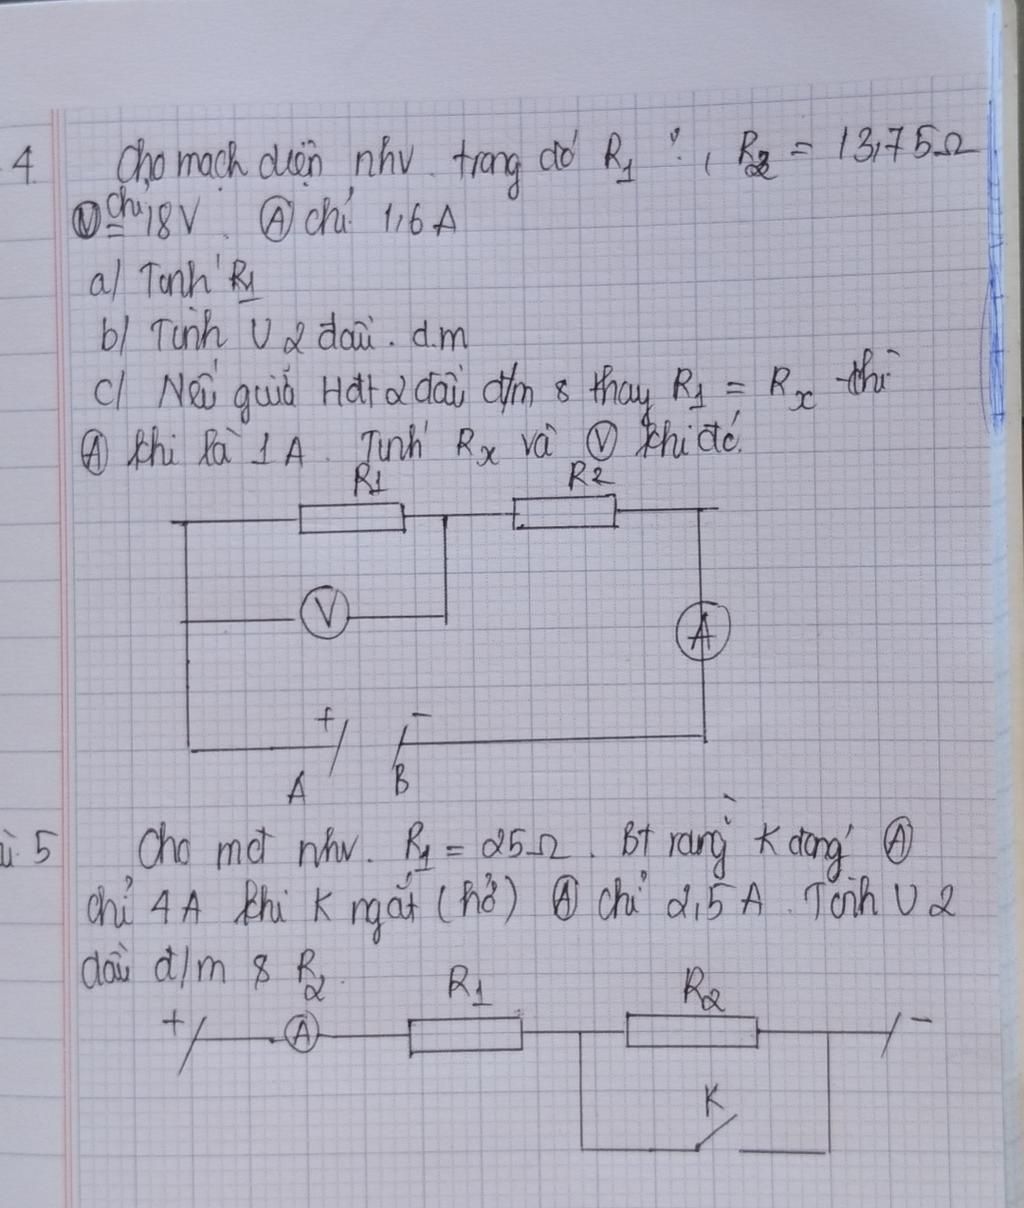 4. Cho mạch điện như. trong đó R1 ?, R2 = 13,75Ω
Ⓥ chỉ 18V. Ⓐ chỉ 1,6A
a/ Tính R1
b/ Tính U 2 đầu. đ.m
c/ Nếu giữ Hđt 2 đầu đ/m & thay R1 = Rx thì
Ⓐ khi là 1A. Tính Rx và Ⓥ khi đó.
R1 R2
V
A
+ -
A B
ài 5 Cho mđ như. R1 = 25Ω. Bt rằng K đóng Ⓐ
chỉ 4A khi K ngắt (hở) Ⓐ chỉ 2,5A. Tính U 2
đầu đ/m & R2.
R1 R2
+ A -
K